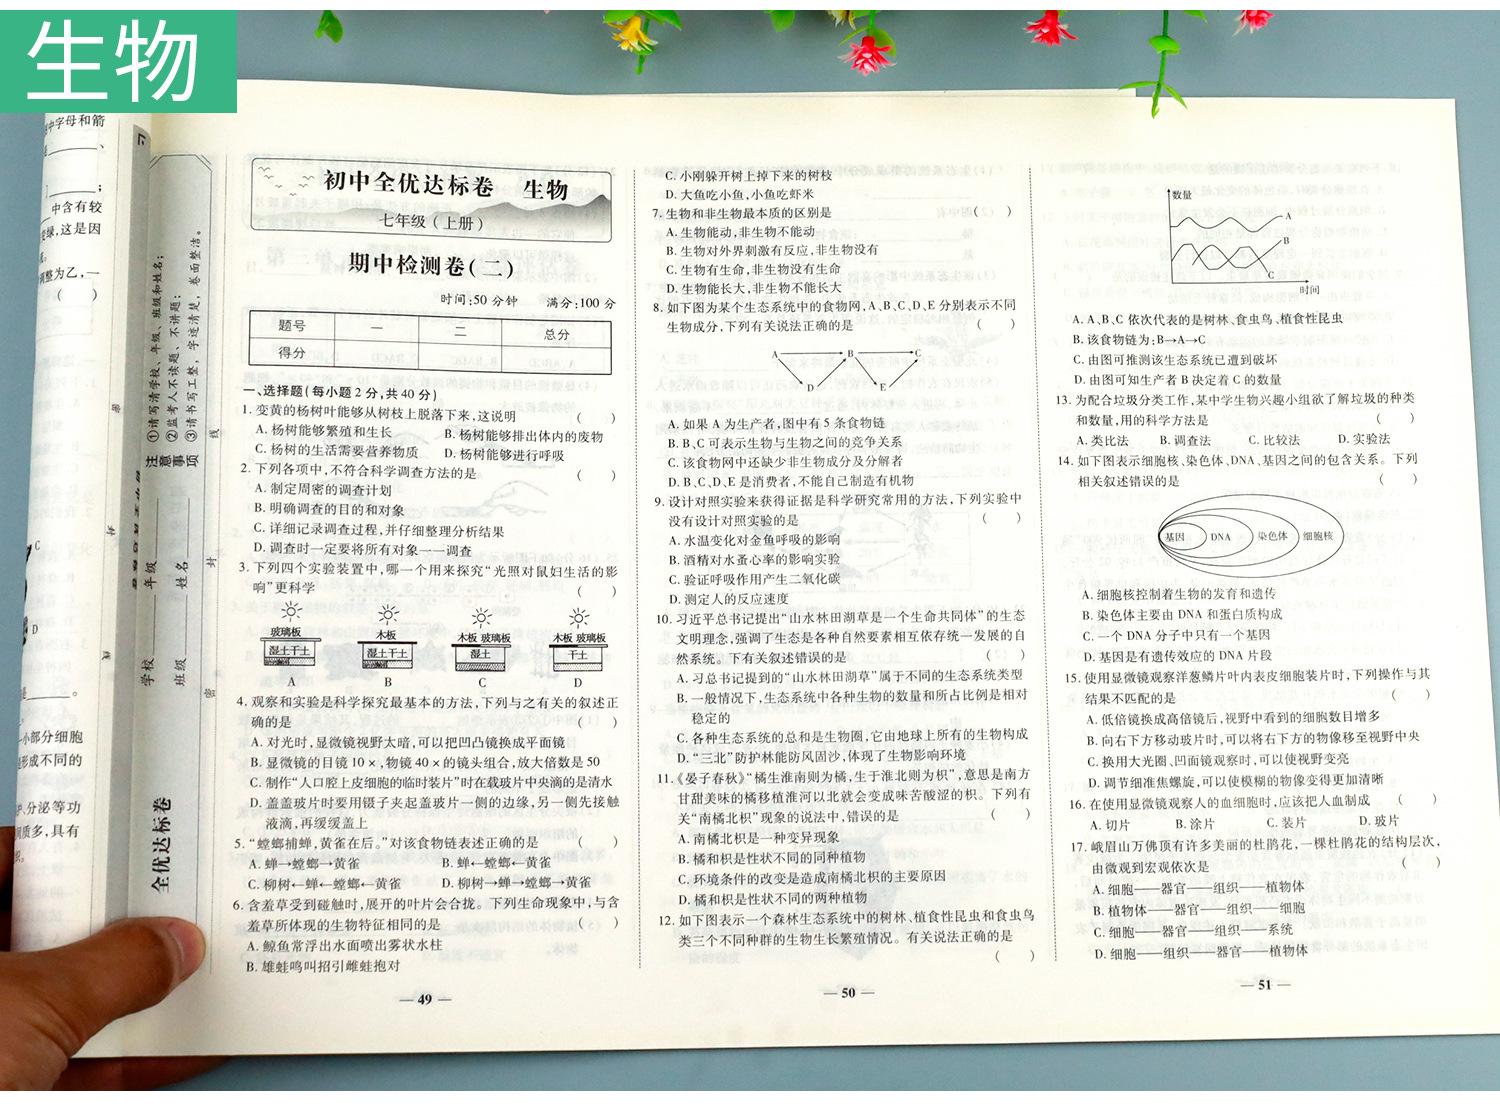 生物
中字母和箭
、
；
中含有较
变绿，这是因
调整为乙，一
（ ）
C
D
。
小部分细胞
形成不同的
分泌等功
质多，具有
学校
年级
班级
姓名
注意事项
①请写清学校、年级、班级和姓名；
②监考人不读题、不讲题；
③请书写工整，字迹清楚，卷面整洁。
密
封
线
全优达标卷
初中全优达标卷 生物
七年级（上册）
期中检测卷（二）
时间：50分钟 满分：100分
题号 一 二 总分
得分
一、选择题（每小题2分，共40分）
1. 变黄的杨树叶能够从树枝上脱落下来，这说明 （ ）
A. 杨树能够繁殖和生长 B. 杨树能够排出体内的废物
C. 杨树的生活需要营养物质 D. 杨树能够进行呼吸
2. 下列各项中，不符合科学调查方法的是 （ ）
A. 制定周密的调查计划
B. 明确调查的目的和对象
C. 详细记录调查过程，并仔细整理分析结果
D. 调查时一定要将所有对象一一调查
3. 下列四个实验装置中，哪一个用来探究“光照对鼠妇生活的影
响”更科学 （ ）
玻璃板 木板 木板 玻璃板 木板 玻璃板
湿土干土 湿土干土 湿土 干土
A B C D
4. 观察和实验是科学探究最基本的方法，下列与之有关的叙述正
确的是 （ ）
A. 对光时，显微镜视野太暗，可以把凹凸镜换成平面镜
B. 显微镜的目镜10×，物镜40×的镜头组合，放大倍数是50
C. 制作“人口腔上皮细胞的临时装片”时在载玻片中央滴的是清水
D. 盖盖玻片时要用镊子夹起盖玻片一侧的边缘，另一侧先接触
液滴，再缓缓盖上
5. “螳螂捕蝉，黄雀在后。”对该食物链表述正确的是 （ ）
A. 蝉→螳螂→黄雀 B. 蝉←螳螂←黄雀
C. 柳树←蝉←螳螂←黄雀 D. 柳树→蝉→螳螂→黄雀
6. 含羞草受到碰触时，展开的叶片会合拢。下列生命现象中，与含
羞草所体现的生物特征相同的是 （ ）
A. 鲸鱼常浮出水面喷出雾状水柱
B. 雄蛙鸣叫招引雌蛙抱对
— 49 —
C. 小刚躲开树上掉下来的树枝
D. 大鱼吃小鱼，小鱼吃虾米
7. 生物和非生物最本质的区别是 （ ）
A. 生物能动，非生物不能动
B. 生物对外界刺激有反应，非生物没有
C. 生物有生命，非生物没有生命
D. 生物能长大，非生物不能长大
8. 如下图为某个生态系统中的食物网，A、B、C、D、E分别表示不同
生物成分，下列有关说法正确的是 （ ）
A B C
D E
A. 如果A为生产者，图中有5条食物链
B. B、C可表示生物与生物之间的竞争关系
C. 该食物网中还缺少非生物成分及分解者
D. B、C、D、E是消费者，不能自己制造有机物
9. 设计对照实验来获得证据是科学研究常用的方法，下列实验中
没有设计对照实验的是 （ ）
A. 水温变化对金鱼呼吸的影响
B. 酒精对水蚤心率的影响实验
C. 验证呼吸作用产生二氧化碳
D. 测定人的反应速度
10. 习近平总书记提出“山水林田湖草是一个生命共同体”的生态
文明理念，强调了生态是各种自然要素相互依存统一发展的自
然系统。下有关叙述错误的是 （ ）
A. 习总书记提到的“山水林田湖草”属于不同的生态系统类型
B. 一般情况下，生态系统中各种生物的数量和所占比例是相对
稳定的
C. 各种生态系统的总和是生物圈，它由地球上所有的生物构成
D. “三北”防护林能防风固沙，体现了生物影响环境
11. 《晏子春秋》“橘生淮南则为橘，生于淮北则为枳”，意思是南方
甘甜美味的橘移植淮河以北就会变成味苦酸涩的枳。下列有
关“南橘北枳”现象的说法中，错误的是 （ ）
A. 南橘北枳是一种变异现象
B. 橘和枳是性状不同的同种植物
C. 环境条件的改变是造成南橘北枳的主要原因
D. 橘和枳是性状不同的两种植物
12. 如下图表示一个森林生态系统中的树林、植食性昆虫和食虫鸟
类三个不同种群的生物生长繁殖情况。有关说法正确的是
（ ）
— 50 —
数量
A
B
C
时间
A. A、B、C依次代表的是树林、食虫鸟、植食性昆虫
B. 该食物链为：B→A→C
C. 由图可推测该生态系统已遭到破坏
D. 由图可知生产者B决定着C的数量
13. 为配合垃圾分类工作，某中学生物兴趣小组欲了解垃圾的种类
和数量，用的科学方法是 （ ）
A. 类比法 B. 调查法 C. 比较法 D. 实验法
14. 如下图表示细胞核、染色体、DNA、基因之间的包含关系。下列
相关叙述错误的是 （ ）
基因 DNA 染色体 细胞核
A. 细胞核控制着生物的发育和遗传
B. 染色体主要由DNA和蛋白质构成
C. 一个DNA分子中只有一个基因
D. 基因是有遗传效应的DNA片段
15. 使用显微镜观察洋葱鳞片叶内表皮细胞装片时，下列操作与其
结果不匹配的是 （ ）
A. 低倍镜换成高倍镜后，视野中看到的细胞数目增多
B. 向右下方移动玻片时，可以将右下方的物像移至视野中央
C. 换用大光圈、凹面镜观察时，可以使视野变亮
D. 调节细准焦螺旋，可以使模糊的物像变得更加清晰
16. 在使用显微镜观察人的血细胞时，应该把人血制成 （ ）
A. 切片 B. 涂片 C. 装片 D. 玻片
17. 峨眉山万佛顶有许多美丽的杜鹃花，一棵杜鹃花的结构层次，
由微观到宏观依次是 （ ）
A. 细胞——器官——组织——植物体
B. 植物体——器官——组织——细胞
C. 细胞——器官——组织——系统
D. 细胞——组织——器官——植物体
— 51 —